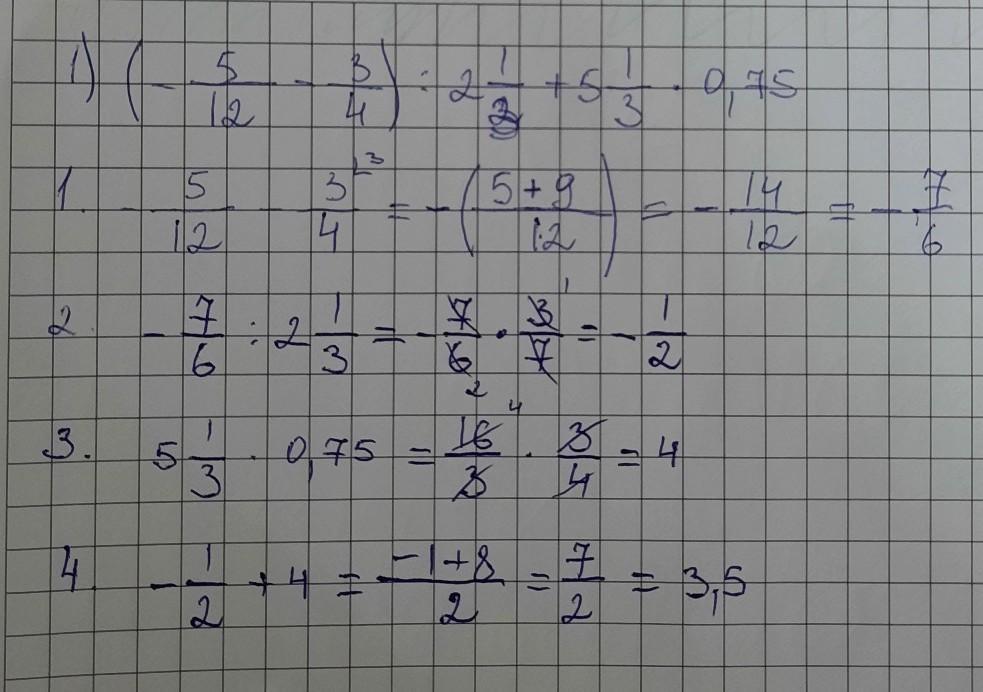 1) (- 5/12 - 3/4) : 2 1/3 + 5 1/3 · 0,75
1. - 5/12 - 3/4 ⌊3 = - (5 + 9 / 12) = - 14/12 = - 7/6
2. - 7/6 : 2 1/3 = - 7/6 2 · 3/7 1 = - 1/2
3. 5 1/3 · 0,75 = 16/3 4 · 3/4 = 4
4. - 1/2 + 4 = -1+8 / 2 = 7/2 = 3,5